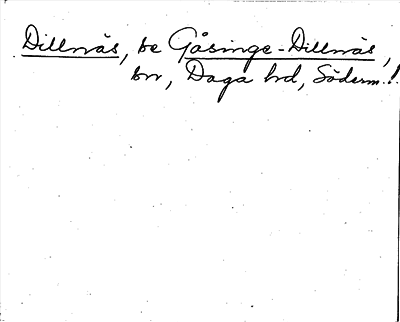 Dillnäs, se Gåsinge-Dillnäs,
sn, Daga hd, Söderm. l.